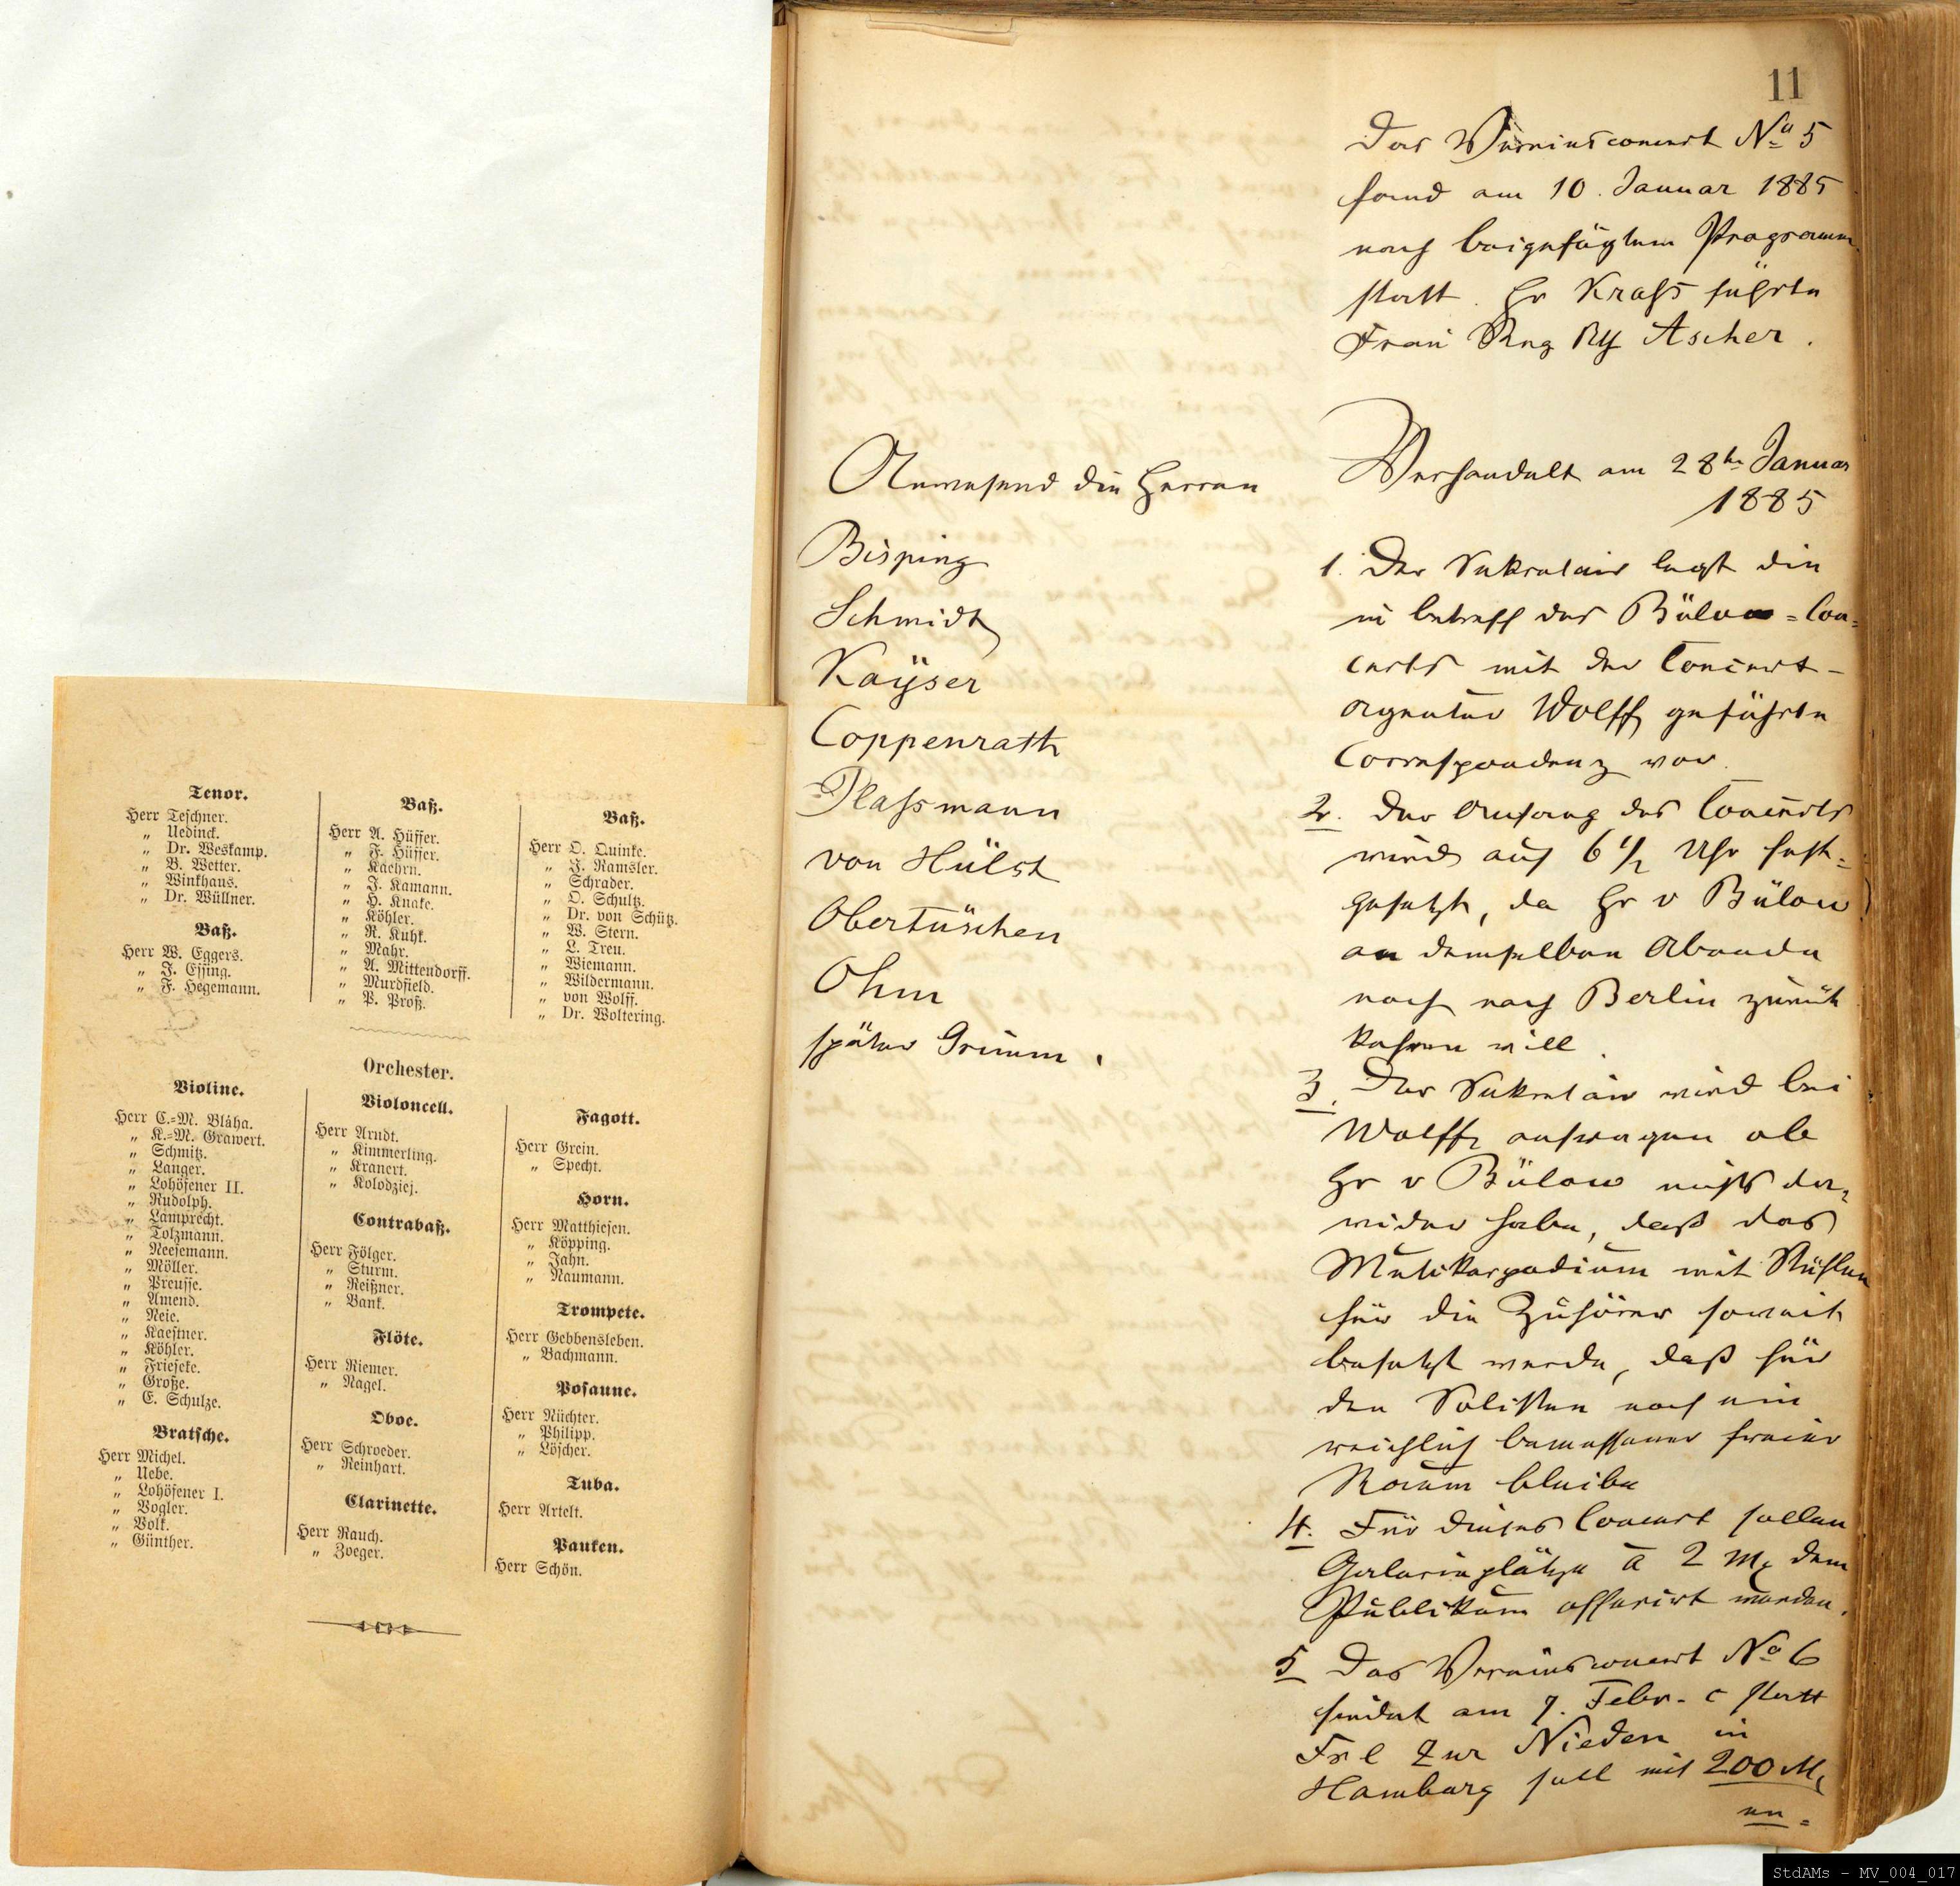 Tenor.
Herr Teschner.
„ Uedinck.
„ Dr. Weskamp.
„ B. Wetter.
„ Winkhaus.
„ Dr. Wüllner.
Baß.
Herr W. Eggers.
„ J. Essing.
„ F. Hegemann.
Baß.
Herr A. Hüffer.
„ F. Hüffer.
„ Kaehrn.
„ J. Kamann.
„ H. Knake.
„ Köhler.
„ R. Kuhk.
„ Mahr.
„ A. Mittendorff.
„ Murdfield.
„ P. Proß.
Baß.
Herr O. Quinke.
„ J. Ramsler.
„ Schrader.
„ O. Schultz.
„ Dr. von Schütz.
„ W. Stern.
„ L. Treu.
„ Wiemann.
„ Wildermann.
„ von Wolff.
„ Dr. Woltering.
Orchester.
Violine.
Herr C.-M. Blâha.
„ K.-M. Grawert.
„ Schmitz.
„ Langer.
„ Lohöfener II.
„ Rudolph.
„ Lamprecht.
„ Tolzmann.
„ Neesemann.
„ Möller.
„ Preusse.
„ Amend.
„ Neie.
„ Kaestner.
„ Köhler.
„ Frieseke.
„ Große.
„ E. Schulze.
Bratsche.
Herr Michel.
„ Uebe.
„ Lohöfener I.
„ Vogler.
„ Volk.
„ Günther.
Violoncell.
Herr Arndt.
„ Kimmerling.
„ Kranert.
„ Kolodziej.
Contrabaß.
Herr Fölger.
„ Sturm.
„ Reißner.
„ Bank.
Flöte.
Herr Riemer.
„ Nagel.
Oboe.
Herr Schroeder.
„ Reinhart.
Clarinette.
Herr Rauch.
„ Zoeger.
Fagott.
Herr Grein.
„ Specht.
Horn.
Herr Matthiesen.
„ Köpping.
„ Jahn.
„ Naumann.
Trompete.
Herr Gebbensleben.
„ Bachmann.
Posaune.
Herr Rüchter.
„ Philipp.
„ Löscher.
Tuba.
Herr Artelt.
Pauken.
Herr Schön.
11
Das Vereinsconcert No 5
fand am 10. Januar 1885
nach beigefügtem Programm
statt. Hr Krass führte
Frau Rng Rth Ascher.
Anwesend die Herren
Bisping
Schmidt
Kaÿser
Coppenrath
Plassmann
von Hülst
Obertüschen
Ohm
später Grimm.
Verhandelt am 28ten Januar
1885
1. Der Sekretair legt die
in betreff des Bülow=Con=
certs mit der Concert-
agentur Wolff geführte
Correspondenz vor.
2. Der Anfang des Concerts
wird auf 6 1/2 Uhr fest=
gesetzt, da Hr v Bülow
an demselben Abende
noch nach Berlin zurück
kehren will.
3. Der Sekretair wird bei
Wolff anfragen ob
Hr v Bülow nichts da=
wider habe, daß das
Musikerpodium mit Stühlen
für die Zuhörer soweit
besetzt werde, daß für
den Solisten noch ein
reichlich bemessener freier
Raum bleibe
4. Für dieses Concert sollen
Gallerieplätze à 2 M. dem
Publikum offerirt werden.
5 Das Vereinsconcert No 6
findet am 7. Febr. c statt
Frl Zur Nieden in
Hamburg soll mit 200 M.
en=
StdAMs - MV_004_017